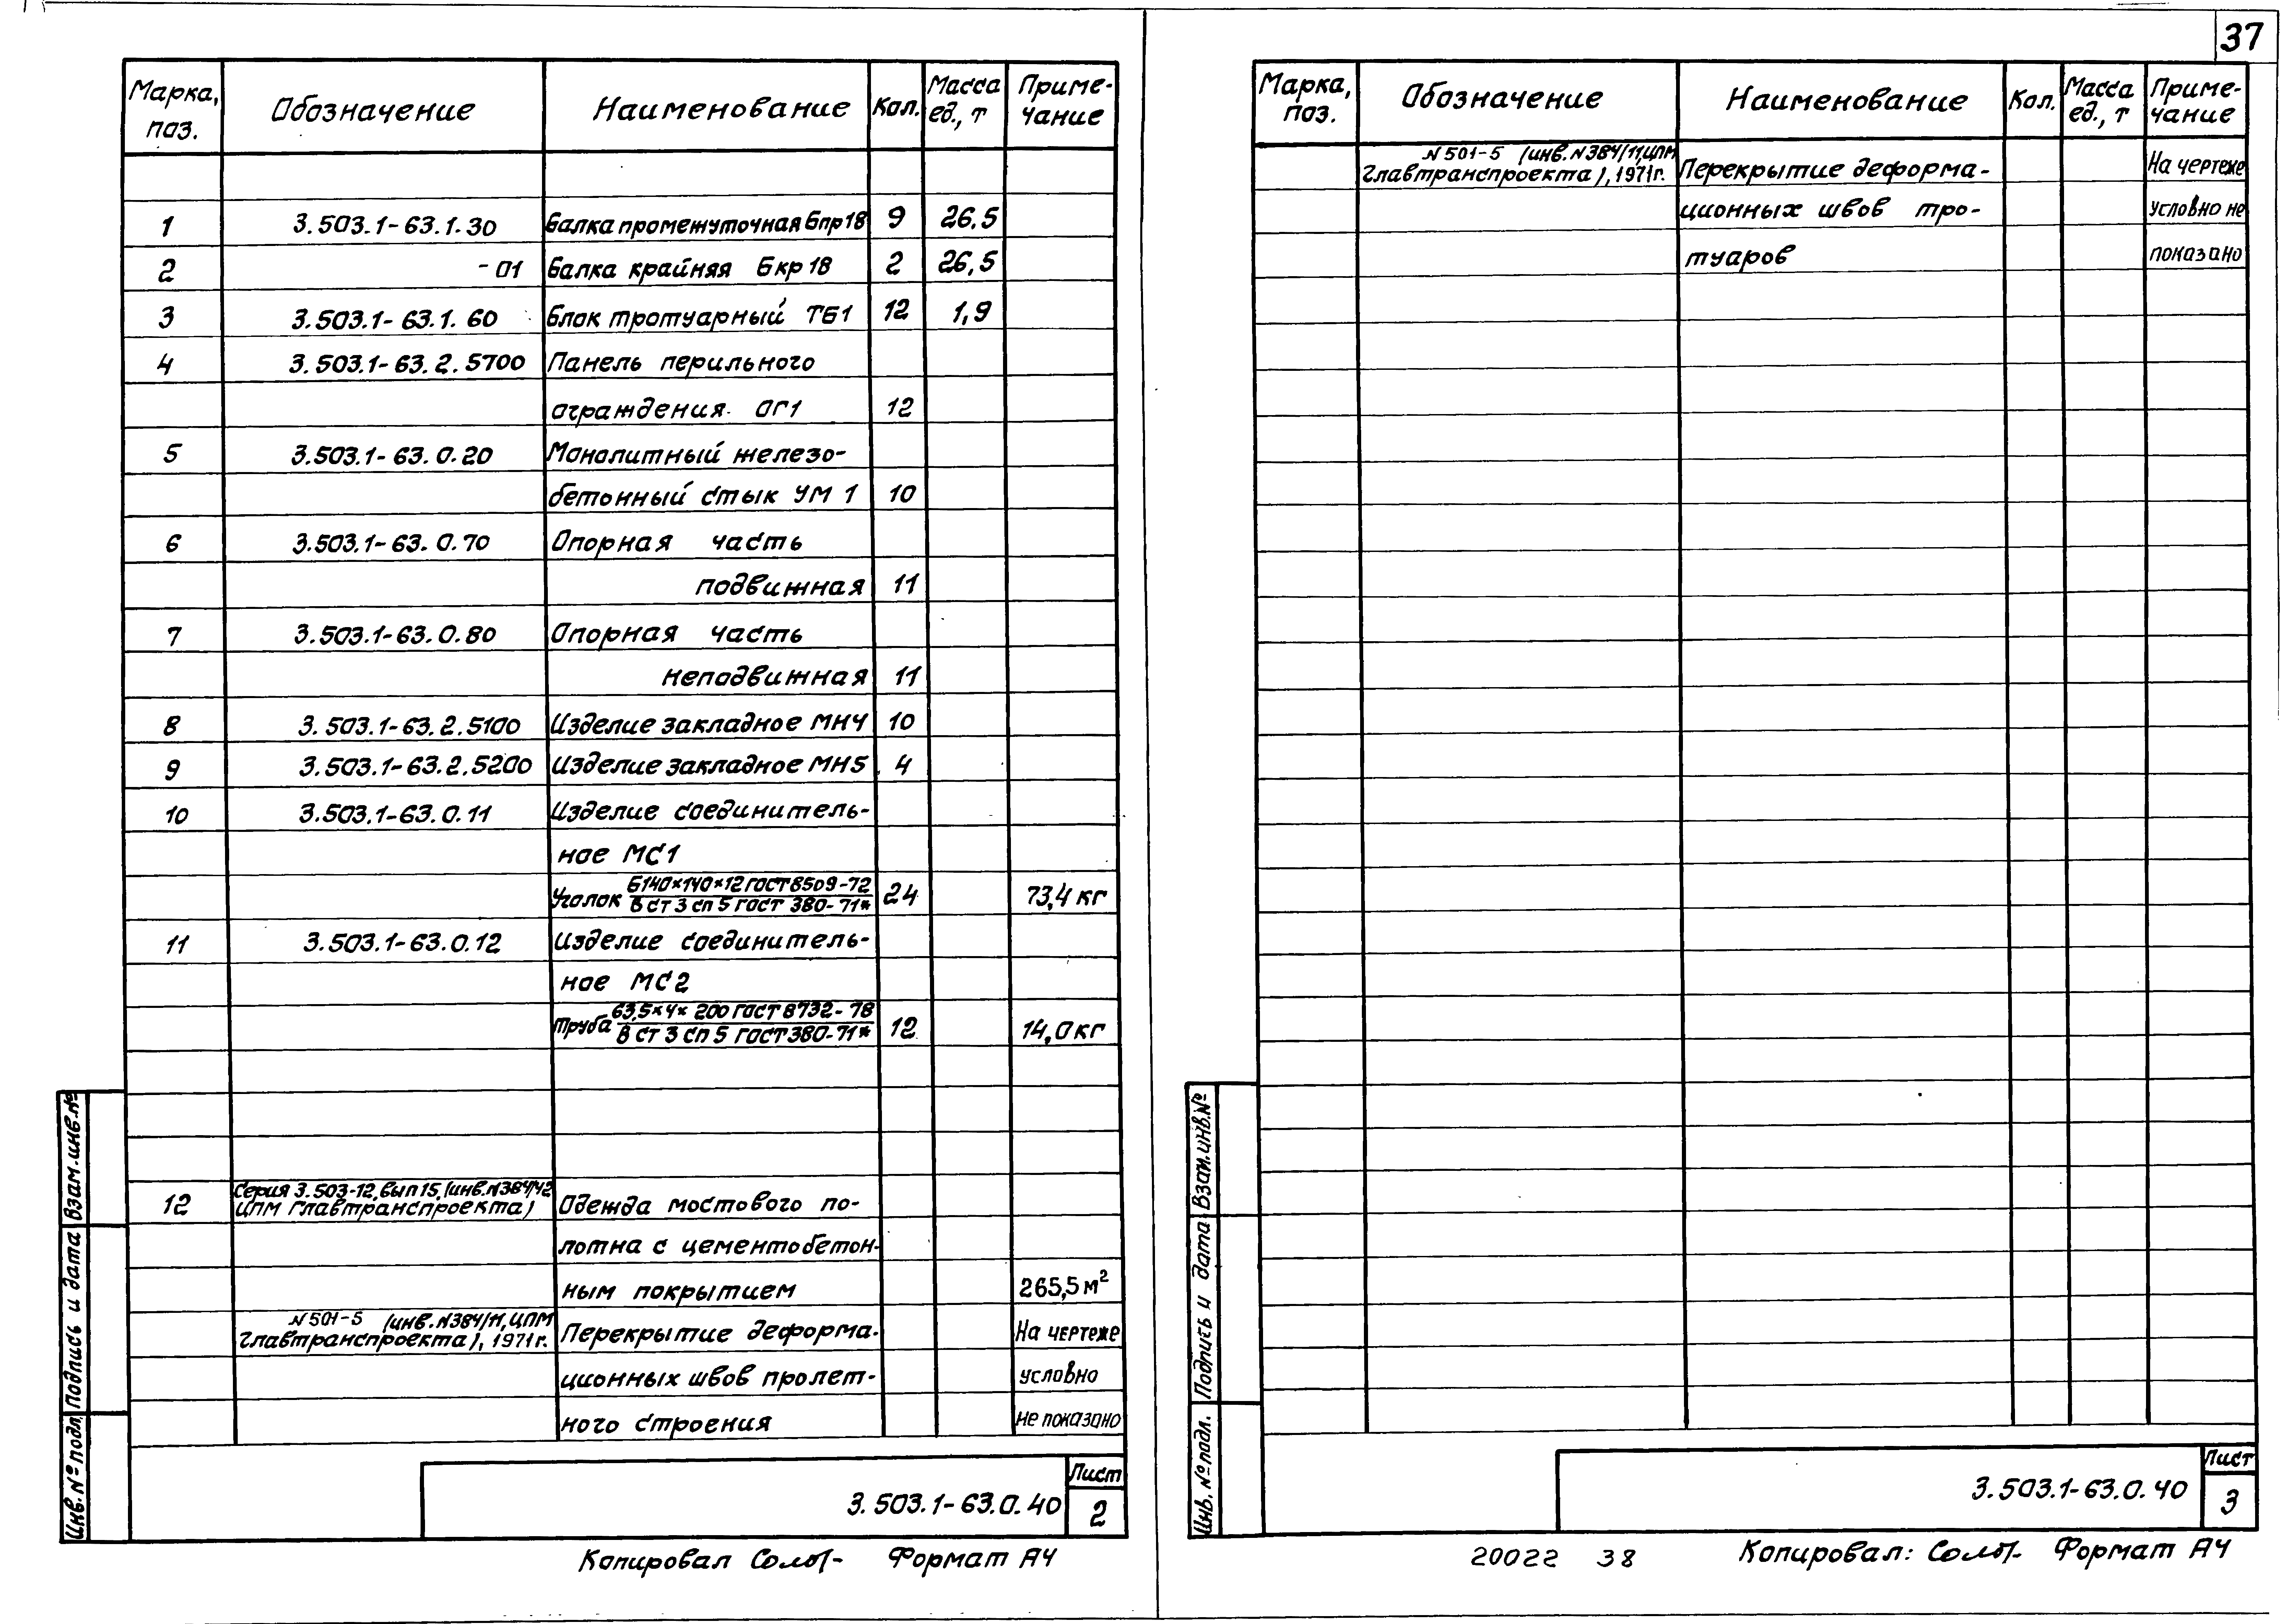 37
Марка, поз. Обозначение Наименование Кол. Масса ед., т Приме-чание
1 3.503.1-63.1.30 Балка промежуточная Бпр18 9 26,5
2 -01 Балка крайняя Бкр18 2 26,5
3 3.503.1-63.1.60 Блок тротуарный ТБ1 12 1,9
4 3.503.1-63.2.5700 Панель перильного
ограждения ОГ1 12
5 3.503.1-63.0.20 Монолитный железо-
бетонный стык УМ 1 10
6 3.503.1-63.0.70 Опорная часть
подвижная 11
7 3.503.1-63.0.80 Опорная часть
неподвижная 11
8 3.503.1-63.2.5100 Изделие закладное МН4 10
9 3.503.1-63.2.5200 Изделие закладное МН5 4
10 3.503.1-63.0.11 Изделие соединитель-
ное МС1
Уголок Б140×140×12 ГОСТ 8509-72 / В Ст 3 сп 5 ГОСТ 380-71* 24 73,4 кг
11 3.503.1-63.0.12 Изделие соединитель-
ное МС2
Труба 63,5×4×200 ГОСТ 8732-78 / В Ст 3 сп 5 ГОСТ 380-71* 12 14,0 кг
Серия 3.503-12, вып 15, (инв. N384/42
12 ЦПМ Главтранспроекта) Одежда мостового по-
лотна с цементобетон-
ным покрытием 265,5 м²
N 501-5 (инв. N384/11, ЦПМ
Главтранспроекта), 1971г. Перекрытие деформа- На чертеже
ционных швов пролет- условно
ного строения не показано
Инв. № подл. Подпись и дата Взам. инв. №
3.503.1-63.0.40 Лист 2
Копировал Формат А4
Марка, поз. Обозначение Наименование Кол. Масса ед., т Приме-чание
N 501-5 (инв. N384/11, ЦПМ
Главтранспроекта), 1971г. Перекрытие деформа- На чертеже
ционных швов тро- условно не
туаров показано
Инв. № подл. Подпись и дата Взам. инв. №
3.503.1-63.0.40 Лист 3
20022 38 Копировал: Формат А4